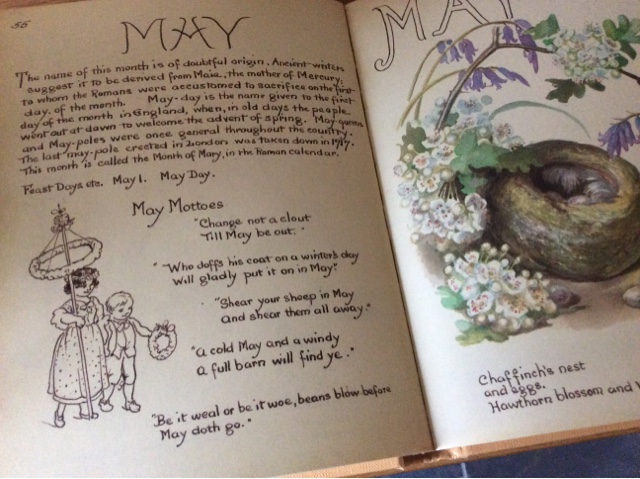 56
MAY
The name of this month is of doubtful origin. Ancient writers
suggest it to be derived from Maia, the mother of Mercury,
to whom the Romans were accustomed to sacrifice on the first
day of the month. May-day is the name given to the first
day of the month in England, when, in old days the people
went out at dawn to welcome the advent of spring. May-queens
and May-poles were once general throughout the country.
The last may-pole erected in London was taken down in 1717.
This month is called the Month of Mary, in the Roman calendar.
Feast Days etc. May 1. May Day.
May Mottoes
"Change not a clout
Till May be out."
"Who doffs his coat on a winter's day
will gladly put it on in May".
"Shear your sheep in May
and shear them all away."
"a cold May and a windy
a full barn will find ye."
"Be it weal or be it woe, beans blow before
May doth go."
MAY
Chaffinch's nest
and eggs.
Hawthorn blossom and